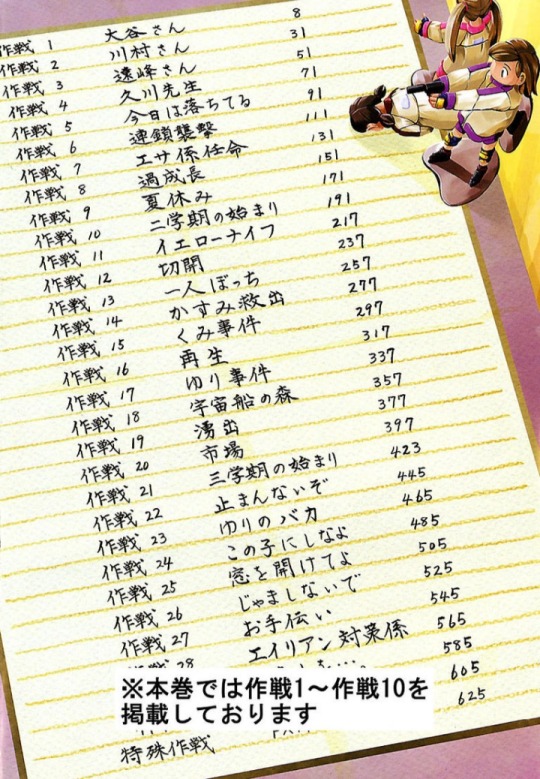 作戦 1 大谷さん 8
作戦 2 川村さん 31
作戦 3 遠峰さん 51
作戦 4 久川先生 71
作戦 5 今日は落ちてる 91
作戦 6 連鎖襲撃 111
作戦 7 エサ係任命 131
作戦 8 過成長 151
作戦 9 夏休み 171
作戦 10 二学期の始まり 191
作戦 11 イエローナイフ 217
作戦 12 切開 237
作戦 13 一人ぼっち 257
作戦 14 かすみ救出 277
作戦 15 くみ事件 297
作戦 16 再生 317
作戦 17 ゆり事件 337
作戦 18 宇宙船の森 357
作戦 19 湧出 377
作戦 20 市場 397
作戦 21 三学期の始まり 423
作戦 22 止まんないぞ 445
作戦 23 ゆりのバカ 465
作戦 24 この子にしなよ 485
作戦 25 窓を開けてよ 505
作戦 26 じゃましないで 525
作戦 27 お手伝い 545
作戦 28 エイリアン対策係 565
585
605
625
特殊作戦
※本巻では作戦1～作戦10を
掲載しております